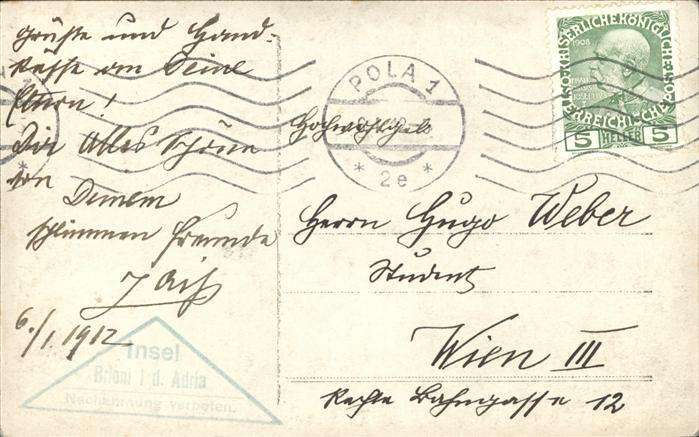 Grüße und Hand-
küsse an Deine
Eltern!
Dir Alles Schöne
von Deinem
schlimmen Freunde
6./1. 1912
Insel
Brioni i. d. Adria
Nachahmung verboten.
POLA 1
* 2e *
KAISERLICHE KÖNIGLICHE
1908
5 HELLER 5
Hochwohlgeb.
Herrn Hugo Weber
Student
Wien III
Rechte Bahngasse 12